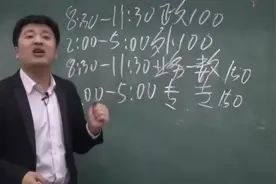 8:30-11:30 政100
2:00-5:00 外100
8:30-11:30 业务一数150
:00-5:00 专 专150